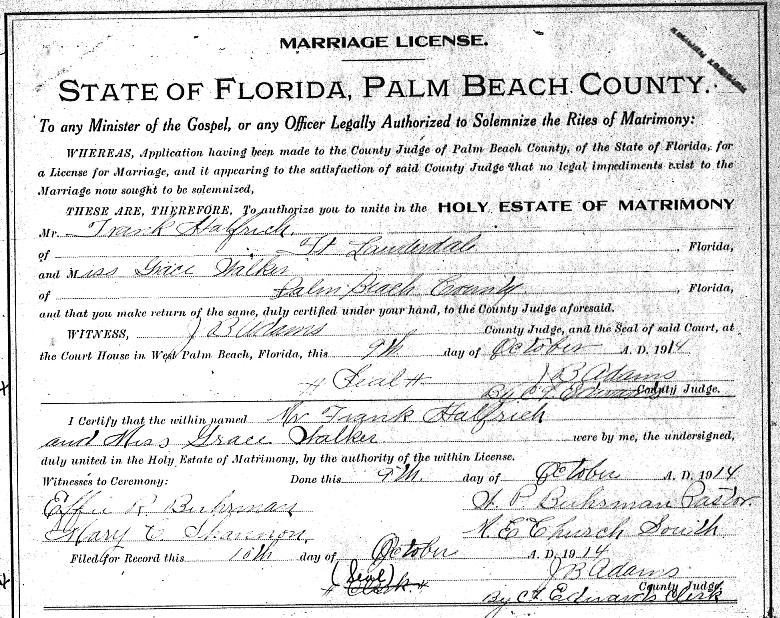 MARRIAGE LICENSE.
STATE OF FLORIDA, PALM BEACH COUNTY.
To any Minister of the Gospel, or any Officer Legally Authorized to Solemnize the Rites of Matrimony:
WHEREAS, Application having been made to the County Judge of Palm Beach County, of the State of Florida, for
a License for Marriage, and it appearing to the satisfaction of said County Judge that no legal impediments exist to the
Marriage now sought to be solemnized,
THESE ARE, THEREFORE, To authorize you to unite in the HOLY ESTATE OF MATRIMONY
Mr. Frank Halfrich
of Ft Lauderdale, Florida,
and Miss Grace Walker
of Palm Beach County, Florida,
and that you make return of the same, duly certified under your hand, to the County Judge aforesaid.
WITNESS, J B Adams County Judge, and the Seal of said Court, at
the Court House in West Palm Beach, Florida, this 9th day of October A. D. 1914
# Seal # J B Adams
By C F Edwards County Judge.
I Certify that the within named Mr Frank Halfrich
and Miss Grace Walker were by me, the undersigned,
duly united in the Holy Estate of Matrimony, by the authority of the within License.
Witnesses to Ceremony: Done this 9th day of October A. D. 1914
Effie R. Buhrman P Buhrman Pastor.
Mary C. Shannon, M. E Church South
Filed for Record this 10th day of October A. D. 1914
(Seal) J B Adams
# Clerk # County Judge.
By Edwards Clerk